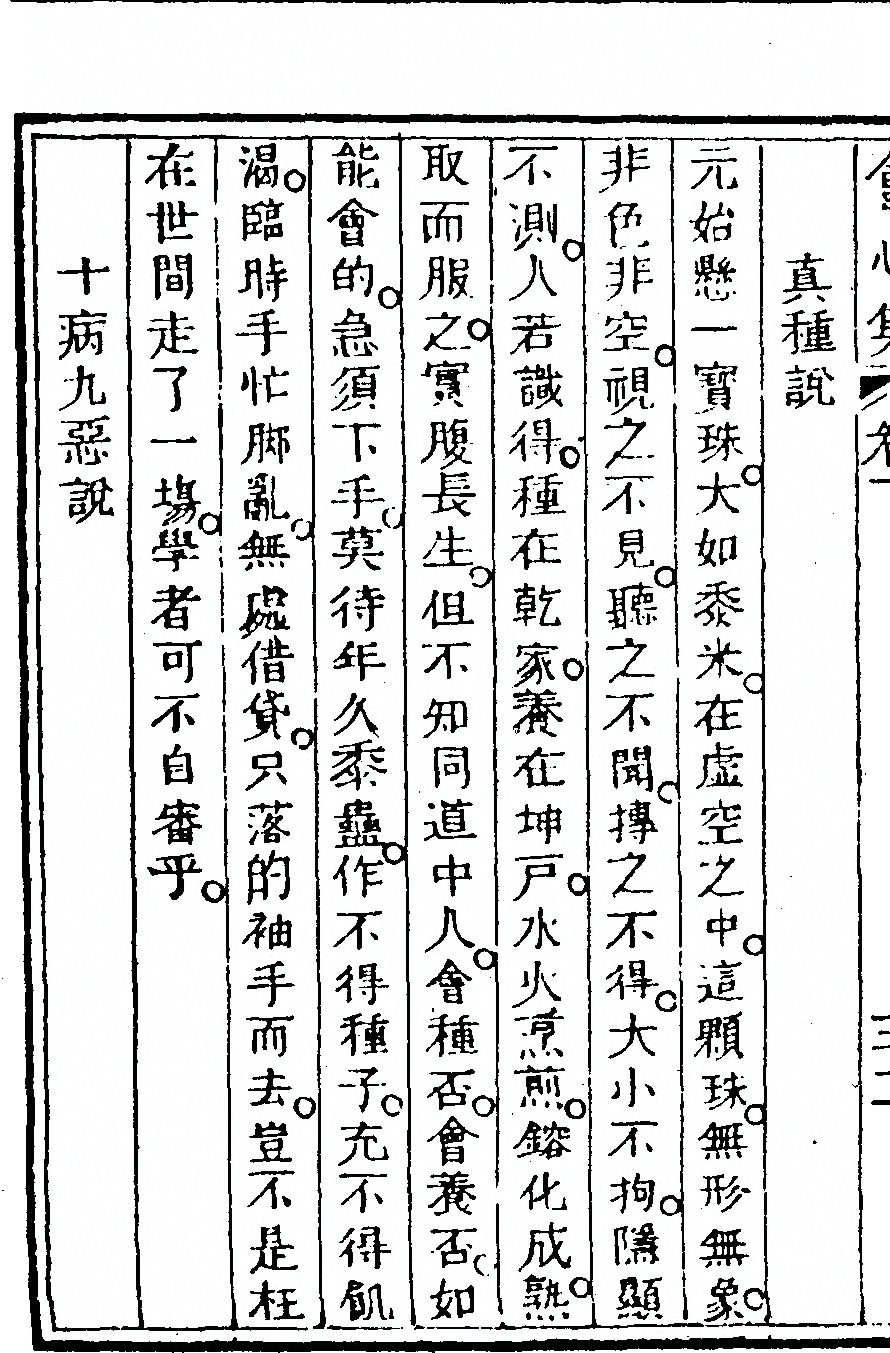 會心集 卷一 三二
真種說
元始懸一寶珠。大如黍米。在虛空之中。這顆珠。無形無象。
非色非空。視之不見。聽之不聞。摶之不得。大小不拘。隱顯
不測。人若識得。種在乾家。養在坤戶。水火烹煎。鎔化成熟。
取而服之。實腹長生。但不知同道中人。會種否。會養否。如
能會的。急須下手。莫待年久黍蠱。作不得種子。充不得飢
渴。臨時手忙腳亂。無處借貸。只落的袖手而去。豈不是枉
在世間走了一場。學者可不自審乎。
十病九惡說